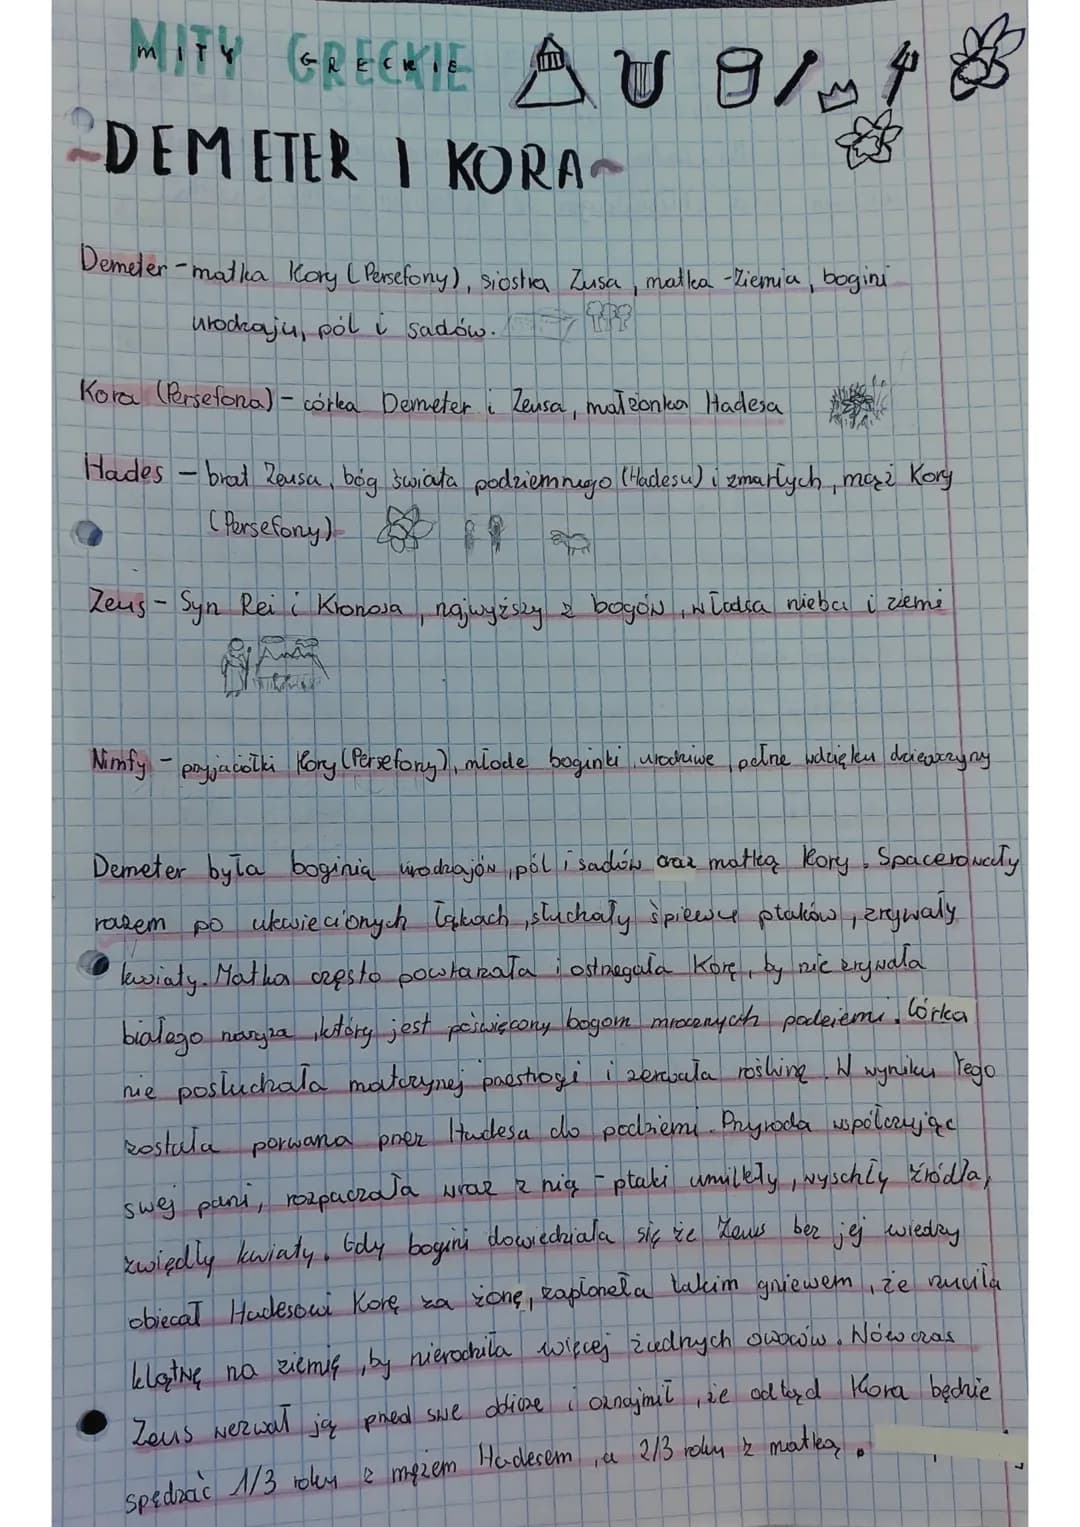 MITY GRECKIE
~DEMETER I KORA~
Demeter - matka Kory (Persefony), siostra Zusa, matka - Ziemia, bogini
urodzaju, pól i sadów.
Kora (Persefona) - córka Demeter i Zeusa, małżonka Hadesa
Hades - brat Zeusa, bóg świata podziemnego (Hadesu) i zmarłych, mąż Kory
(Persefony)
Zeus - Syn Rei i Kronosa, najwyższy z bogów, władca nieba i ziemi
Nimfy - przyjaciółki Kory (Persefony), młode boginki urodziwe, pełne wdzięku dziewczyny
Demeter była boginią urodzajów, pól i sadów oraz matką Kory. Spacerowały
razem po ukwieconych łąkach, słuchały śpiewu ptaków, zrywały
kwiaty. Matka często powtarzała i ostrzegała Korę, by nie zrywała
białego narcyza, który jest poświęcony bogom mrocznych podziemi. Córka
nie posłuchała matczynej przestrogi i zerwała roślinę. W wyniku tego
została porwana przez Hadesa do podziemi. Przyroda współczując
swej pani, rozpaczała wraz z nią - ptaki umilkły, wyschły źródła,
zwiędły kwiaty. Gdy bogini dowiedziała się że Zeus bez jej wiedzy
obiecał Hadesowi Korę za żonę, zapłoneła takim gniewem, że rzuciła
klątwę na ziemię, by nierodziła więcej żadnych owoców. Wówczas
Zeus wezwał ją przed swe oblicze i oznajmił, że odtąd Kora będzie
spędzać 1/3 roku z mężem Hadesem, a 2/3 roku z matką.